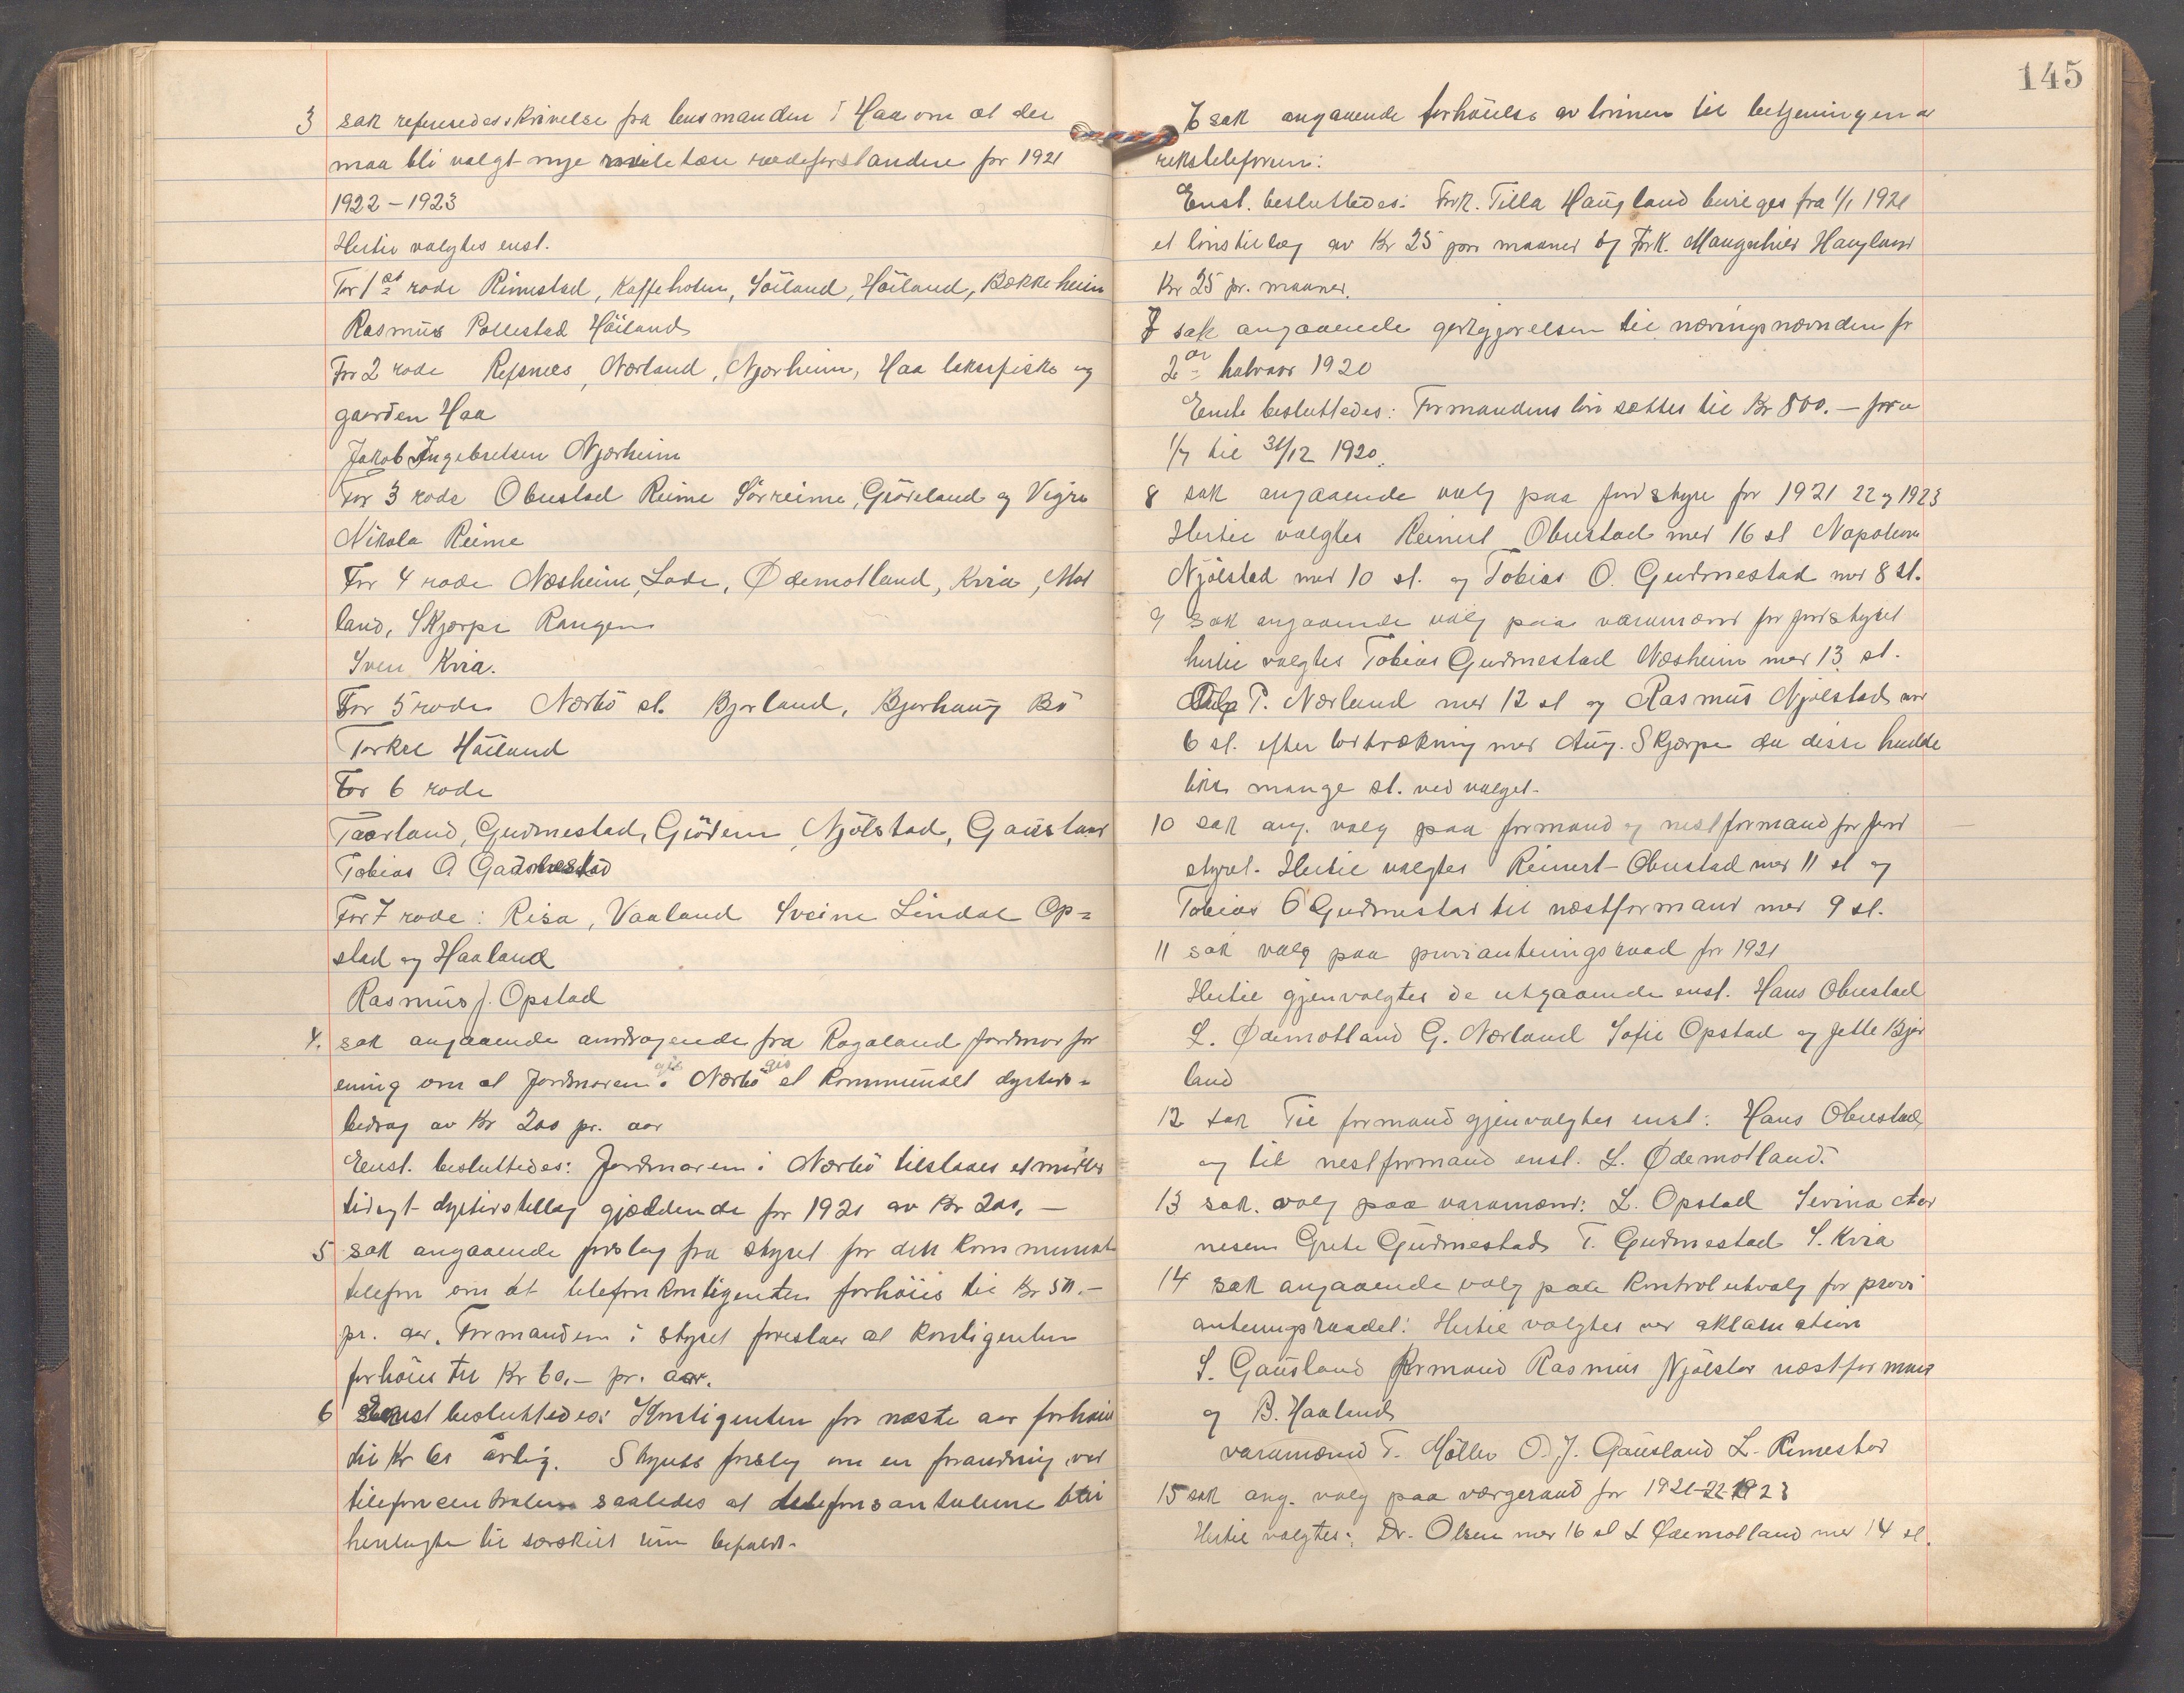 3 sak referedes skrivelse fra lensmanden i Haa om at der
maa bli valgt nye militære rodeforstandere for 1921
1922-1923
Hertil valgtes enst.
For 1ste rode Rimestad, Kaffeholen, Söiland, Höiland, Bækkeheim
Rasmus Pollestad Höiland
For 2 rode Refsnes, Nærland, Njærheim, Haa laksefiske og
gaarden Haa
Jakob Ingebretsen Njærheim
For 3 rode Obrestad Reime Sörreime, Gröteland og Vigre
Nikola Reime
For 4 rode Næsheim, Lode, Ødemotland, Kvia, Mot
land, Skjærpe Rangen
Sven Kvia.
For 5 rode Nærbö st. Bjorland, Bjorhaug Bö
Torkel Höiland
For 6 rode
Taarland, Gudmestad, Grödem, Njölstad, Gausland
Tobias O Gudmestad
For 7 rode: Risa, Vaaland Sveine Lindal Op=
stad og Haaland
Rasmus J. Opstad
4. sak angaaende andragende fra Rogaland Jordmor for
ening om at Jordmoren i Nærbö gis et kommunalt dyrtids=
bidrag av Kr 200 pr. aar
Enst. besluttedes: Jordmoren i Nærbö tilstaaes et midler
tidigt dyrtidstillæg gjældende for 1921 av Kr 200,-
5 sak angaaende forslag fra styret for den kommunale
telefon om at telefonkontigenten forhöies til Kr 50.-
pr. aar. Formanden i styret foreslaar at kontigenten
forhöies til Kr 60.- pr. aar.
6 Enst besluttedes: Kontigenten for næste aar forhöies
til Kr 60 årlig. Styrets forslag om en forandring ved
telefoncentralen saaledes at telefonsamtalene blir
henlagte til særskilt rum bifaldt.
145
6 sak angaaende forhöielse av lönnen til betjeningen av
rikstelefonen:
Enst. besluttedes: Frk. Tilla Haugland bevilges fra 1/1 1921
et lönstillæg av Kr 25 pr. maaned og Frk. Mangnhild Haugland
Kr 25 pr. maaned.
7 sak angaaende godtgjørelsen til næringsnævnden for
2det halvaar 1920
Enst. besluttedes: Formandens lön sættes til Kr 800.- fra
1/7 til 31/12 1920.
8 sak angaaende valg paa jordstyre for 1921 22 og 1923
Hertil valgtes Reinert Obrestad med 16 st Napoleon
Njölstad med 10 st. og Tobias O. Gudmestad med 8 st.
9 sak angaaende valg paa varamænd for jordstyret
hertil valgtes Tobias Gudmestad Næsheim med 13 st.
P. Nærland med 12 st og Rasmus Njölstad med
6 st. efter lodtrækning med Aug. Skjærpe da disse hadde
like mange st. ved valget.
10 sak ang. valg paa formand og nestformand for jord
styret. Hertil valgtes Reinert Obrestad med 11 st og
Tobias O Gudmestad til næstformand med 9 st.
11 sak valg paa provianteringsraad for 1921
Hertil gjenvalgtes de utgaaende enst. Hans Obrestad
L. Ødemotland G. Nærland Sofie Opstad og Jette Bjor
land
12 sak Til formand gjenvalgtes enst: Hans Obrestad
og til nestformand enst. L. Ødemotland.
13 sak. valg paa varamænd: L. Opstad Sevina Aar
nesen Grete Gudmestad T. Gudmestad S. Kvia
14 sak angaaende valg paa Kontrolutvalg for provi
anteringsraadet: Hertil valgtes ved aklamation
S. Gausland formand Rasmus Njölstad næstformand
og B. Haaland
varamænd T. Möller O. J. Gausland L. Rimestad
15 sak ang. valg paa værgeraad for 1921-22-1923
Hertil valgtes: Dr. Olsen med 16 st L Ødemotland med 14 st.